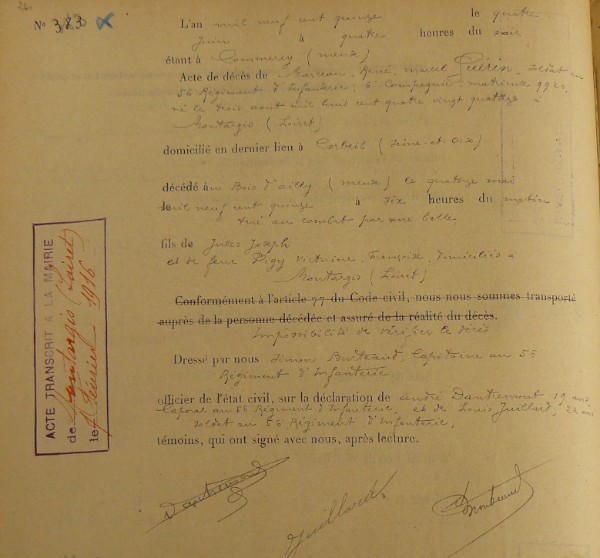 26
N° 383
L'an mil neuf cent quinze le quatre
Juin à quatre heures du soir
étant à Commercy (Meuse)
Acte de décès de Marceau, René, Marcel Guérin, soldat au
56 Régiment d'Infanterie, 6e Compagnie, matricule
né le trois aout mil huit cent quatre vingt quatorze à
Montargis (Loiret)
domicilié en dernier lieu à Corbeil (Seine-et-Oise)
décédé au Bois d'Ailly (Meuse) le quatorze mai
mil neuf cent quinze à six heures du matin
tué au combat par une balle
fils de Jules Joseph
et de feue Pigy Victorine, Françoise, domiciliés à
Montargis (Loiret)
Conformément à l'article 77 du Code civil, nous nous sommes transporté
auprès de la personne décédée et assuré de la réalité du décès.
Impossibilité de vérifier le décès
Dressé par nous Simon Capitaine au 56
Régiment d'Infanterie
officier de l'état civil, sur la déclaration de André Dautremont 19 ans
Caporal au 56 Régiment d'Infanterie, et de Louis Juillard, 22 ans
soldat au 56 Régiment d'Infanterie,
témoins, qui ont signé avec nous, après lecture.
Dautremont
Juillard
ACTE TRANSCRIT A LA MAIRIE
de Montargis (Loiret)
le Février 1916